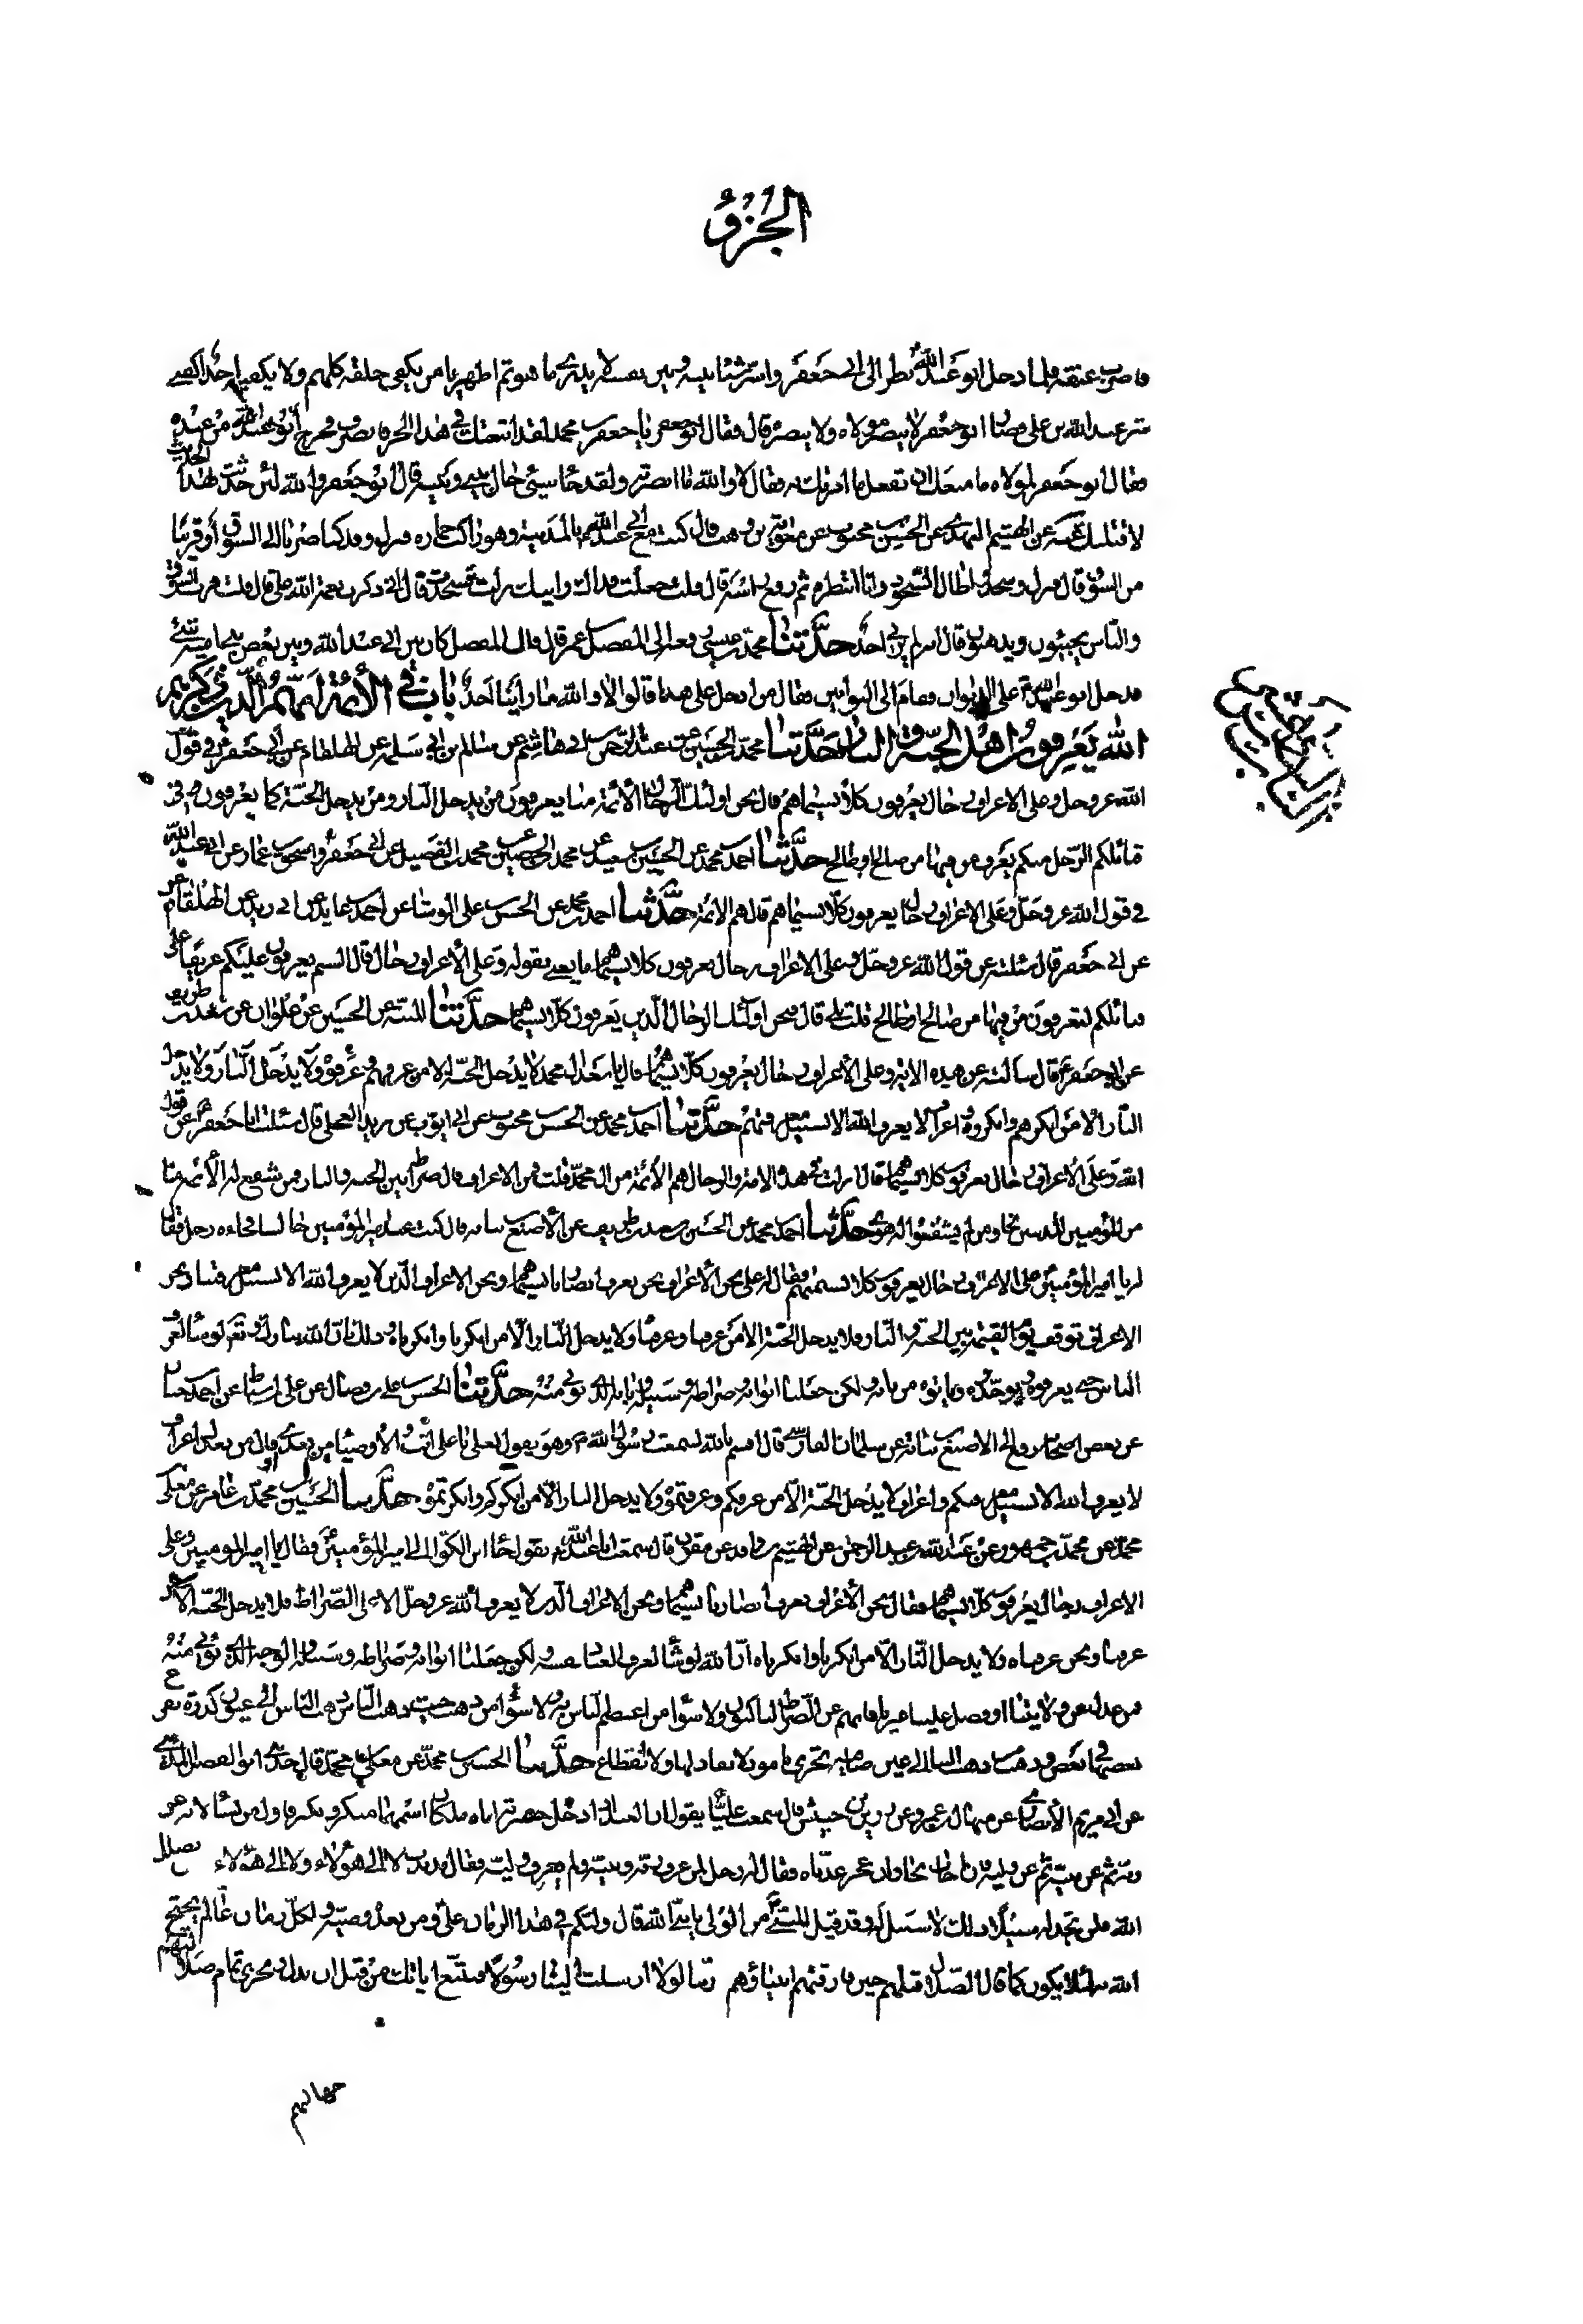 الجزؤ
فاضرب عنقه فلما ادخل ابو عبد الله نظر الى ابى جعفر واسر شيئا بينه وبين نفسه لا يدرى ما هو ثم اظهر يا من يكفى خلقه كلهم ولا يكفيه احد اكفنى
شر عبد الله بن على فصار ابو جعفر لا يبصر مولاه ولا يبصره قال فقال ابو جعفر يا جعفر بن محمد لقد اتعبتك فى هذا الحر فانصرف فخرج ابو عبد الله من عنده
فقال ابو جعفر لمولاه ما منعك ان تفعل ما امرتك به فقال لا والله ما ابصرته ولقد جاء شىء حال بينى وبينه قال ابو جعفر والله لئن حدثت بهذا الحديث
لاقتلنك عن الهيثم النهدى عن الحسن بن محبوب عن معوية بن وهب قال كنت مع ابى عبد الله بالمدينة وهو راكب حماره فنزل وقد كنا صرنا الى السوق او قريبا
من السوق قال فنزل وسجد واطال السجود وانا انتظره ثم رفع راسه قال قلت جعلت فداك رايتك نزلت فسجدت قال انى ذكرت نعمة الله على قال قلت قرب السوق
والناس يجيئون ويذهبون قال انه لم يرنى احد حدثنا محمد بن عيسى عن المفضل بن عمر قال كان بين ابى عبد الله وبين بعض بنى امية شئ
فدخل ابو عبد الله على الديوان فقام الى البوابين فقال من ادخل على هذا قالوا لا والله ما راينا احد باب فى الأئمة انهم الذين ذكرهم
الله يعرفون اهل الجنة والنار حدثنا محمد بن الحسين عن عبد الرحمن بن ابى هاشم عن سالم بن ابى سلمه عن الهلقام عن ابى جعفر فى قول
الله عز وجل وعلى الاعراف رجال يعرفون كلا بسيماهم قال نحن اولئك الرجال الأئمة منا يعرفون من يدخل النار ومن يدخل الجنة كما يعرفون فى
قبائلكم الرجل منكم يعرف من فيها من صالح او طالح حدثنا احمد بن محمد عن الحسين بن سعيد عن محمد بن الحصين عن محمد بن الفضيل عن ابى جعفر واسحق بن عمار عن ابى عبد الله
فى قول الله عز وجل وعلى الاعراف رجال يعرفون كلا بسيماهم قال هم الائمة حدثنا احمد بن محمد عن الحسن بن على الوشا عن احمد بن عايذ عن ابى زيد عن الهلقام
عن ابى جعفر قال سئلته عن قول الله عز وجل وعلى الاعراف رجال يعرفون كلا بسيماهم ما يعنى بقوله وعلى الأعراف رجال قال الستم يعرفون عليكم عريفا على
قبائلكم لتعرفون من فيها من صالح او طالح قلت بلى قال فنحن اولئك الرجال الذين يعرفون كلا بسيماهم حدثنا المنبه عن الحسين بن علوان عن سعد بن طريف
عن ابى جعفر قال سألته عن هذه الاية وعلى الأعراف رجال يعرفون كلا بسيماهم قال يا سعد ال محمد لا يدخل الجنة الا من عرفهم وعرفوه ولا يدخل النار ولا يدخل
النار الا من انكرهم وانكروه واعراف لا يعرف الله الا بسبيل معرفتهم حدثنا احمد بن محمد عن الحسن بن محبوب عن ابى ايوب عن بريد العجلى قال سئلت ابا جعفر عن قول
الله وعلى الأعراف رجال يعرفون كلا بسيماهم قال نزلت فى هذه الامة والرجال هم الأئمة من ال محمد قلت فمن الاعراف قال صراط بين الجنة والنار فمن شفع له الأئمة منا
من المؤمنين المذنبين نجا ومن لم يشفعوا له هوى حدثنا احمد بن محمد عن الحسن بن سعد بن طريف عن الأصبغ بن نباته قال كنت عند امير المؤمنين جالسا فجاءه رجل فقال
له يا امير المؤمنين وعلى الاعراف رجال يعرفون كلا بسيماهم فقال له على نحن الأعراف نحن نعرف انصارنا بسيماهم ونحن الاعراف الذين لا يعرف الله الا بسبيل معرفتنا ونحن
الاعراف نوقف يوم القيمة بين الجنة والنار فلا يدخل الجنة الا من عرفنا وعرفناه ولا يدخل النار الا من انكرنا وانكرناه وذلك بان الله تبارك وتعالى لو شاء لعرف
الناس حتى يعرفوه ويوحدوه وياتوه من بابه ولكن جعلنا ابوابه وصراطه وسبيله وبابه الذى يؤتى منه حدثنا الحسن بن على بن فضال عن على بن اسباط عن احمد بن حنان
عن بعض اصحابه رفعه الى الاصبغ بن نباتة عن سلمان الفارسى قال اقسم بالله لسمعت رسول الله وهو يقول لعلى يا على انت والأوصياء من بعدى او قال من بعدك اعراف
لا يعرف الله الا بسبيل معرفتكم واعراف لا يدخل الجنة الا من عرفكم وعرفتموه ولا يدخل النار الا من انكركم وانكرتموه حدثنا الحسين بن محمد بن عامر عن معلى بن
محمد عن محمد بن جمهور عن عبد الله بن عبد الرحمن عن الهيثم بن واقد عن مقرن قال سمعت ابا عبد الله يقول جاء ابن الكوا الى امير المؤمنين فقال يا امير المؤمنين وعلى
الاعراف رجال يعرفون كلا بسيماهم فقال نحن الأعراف نعرف انصارنا بسيماهم ونحن الاعراف الذين لا يعرف الله عز وجل الا على الصراط فلا يدخل الجنة الا من
عرفنا ونحن عرفناه ولا يدخل النار الا من انكرنا وانكرناه ان الله لو شاء لعرف العباد نفسه ولكن جعلنا ابوابه وصراطه وسبيله والوجه الذى يؤتى منه
فمن عدل عن ولايتنا او فضل علينا غيرنا فانهم عن الصراط لناكبون ولا سواء من اعتصم الناس به ولا سواء من ذهب حيث ذهب الناس ذهب الناس الى عيون كدرة يفرغ
بعضها فى بعض وذهب من ذهب الينا الى عين صافية تجرى بامور لا نفاد لها ولا انقطاع حدثنا الحسين بن محمد عن معلى بن محمد قال حدثنى ابو الفضل المدينى
عن ابى مريم الأنصارى عن منهال بن عمرو عن زر بن حبيش قال سمعت عليا يقول ان العبد اذا ادخل حفرته اتاه ملكان اسمهما منكر ونكير فاول من يسئلانه عن
ربه ثم عن نبيه ثم عن وليه فان اجاب نجا وان عجز عذباه فقال له رجل لمن عرف ربه ونبيه ولم يعرف وليه فقال مذبذب لا الى هؤلاء ولا الى هؤلاء ومن يضلل
الله فلن تجد له سبيلا ذلك لا سبيل له وقد قيل للنبى من الولى يا نبى الله قال وليكم فى هذا الزمان على ومن بعده وصيه ولكل زمان عالم يحتج
الله به لئلا يكون كما قال الضلال قبلهم حين فارقتهم انبياؤهم ربنا لولا ارسلت الينا رسولا فنتبع اياتك من قبل ان نذل ونخزى تمام ضلالتهم
جهالتهم